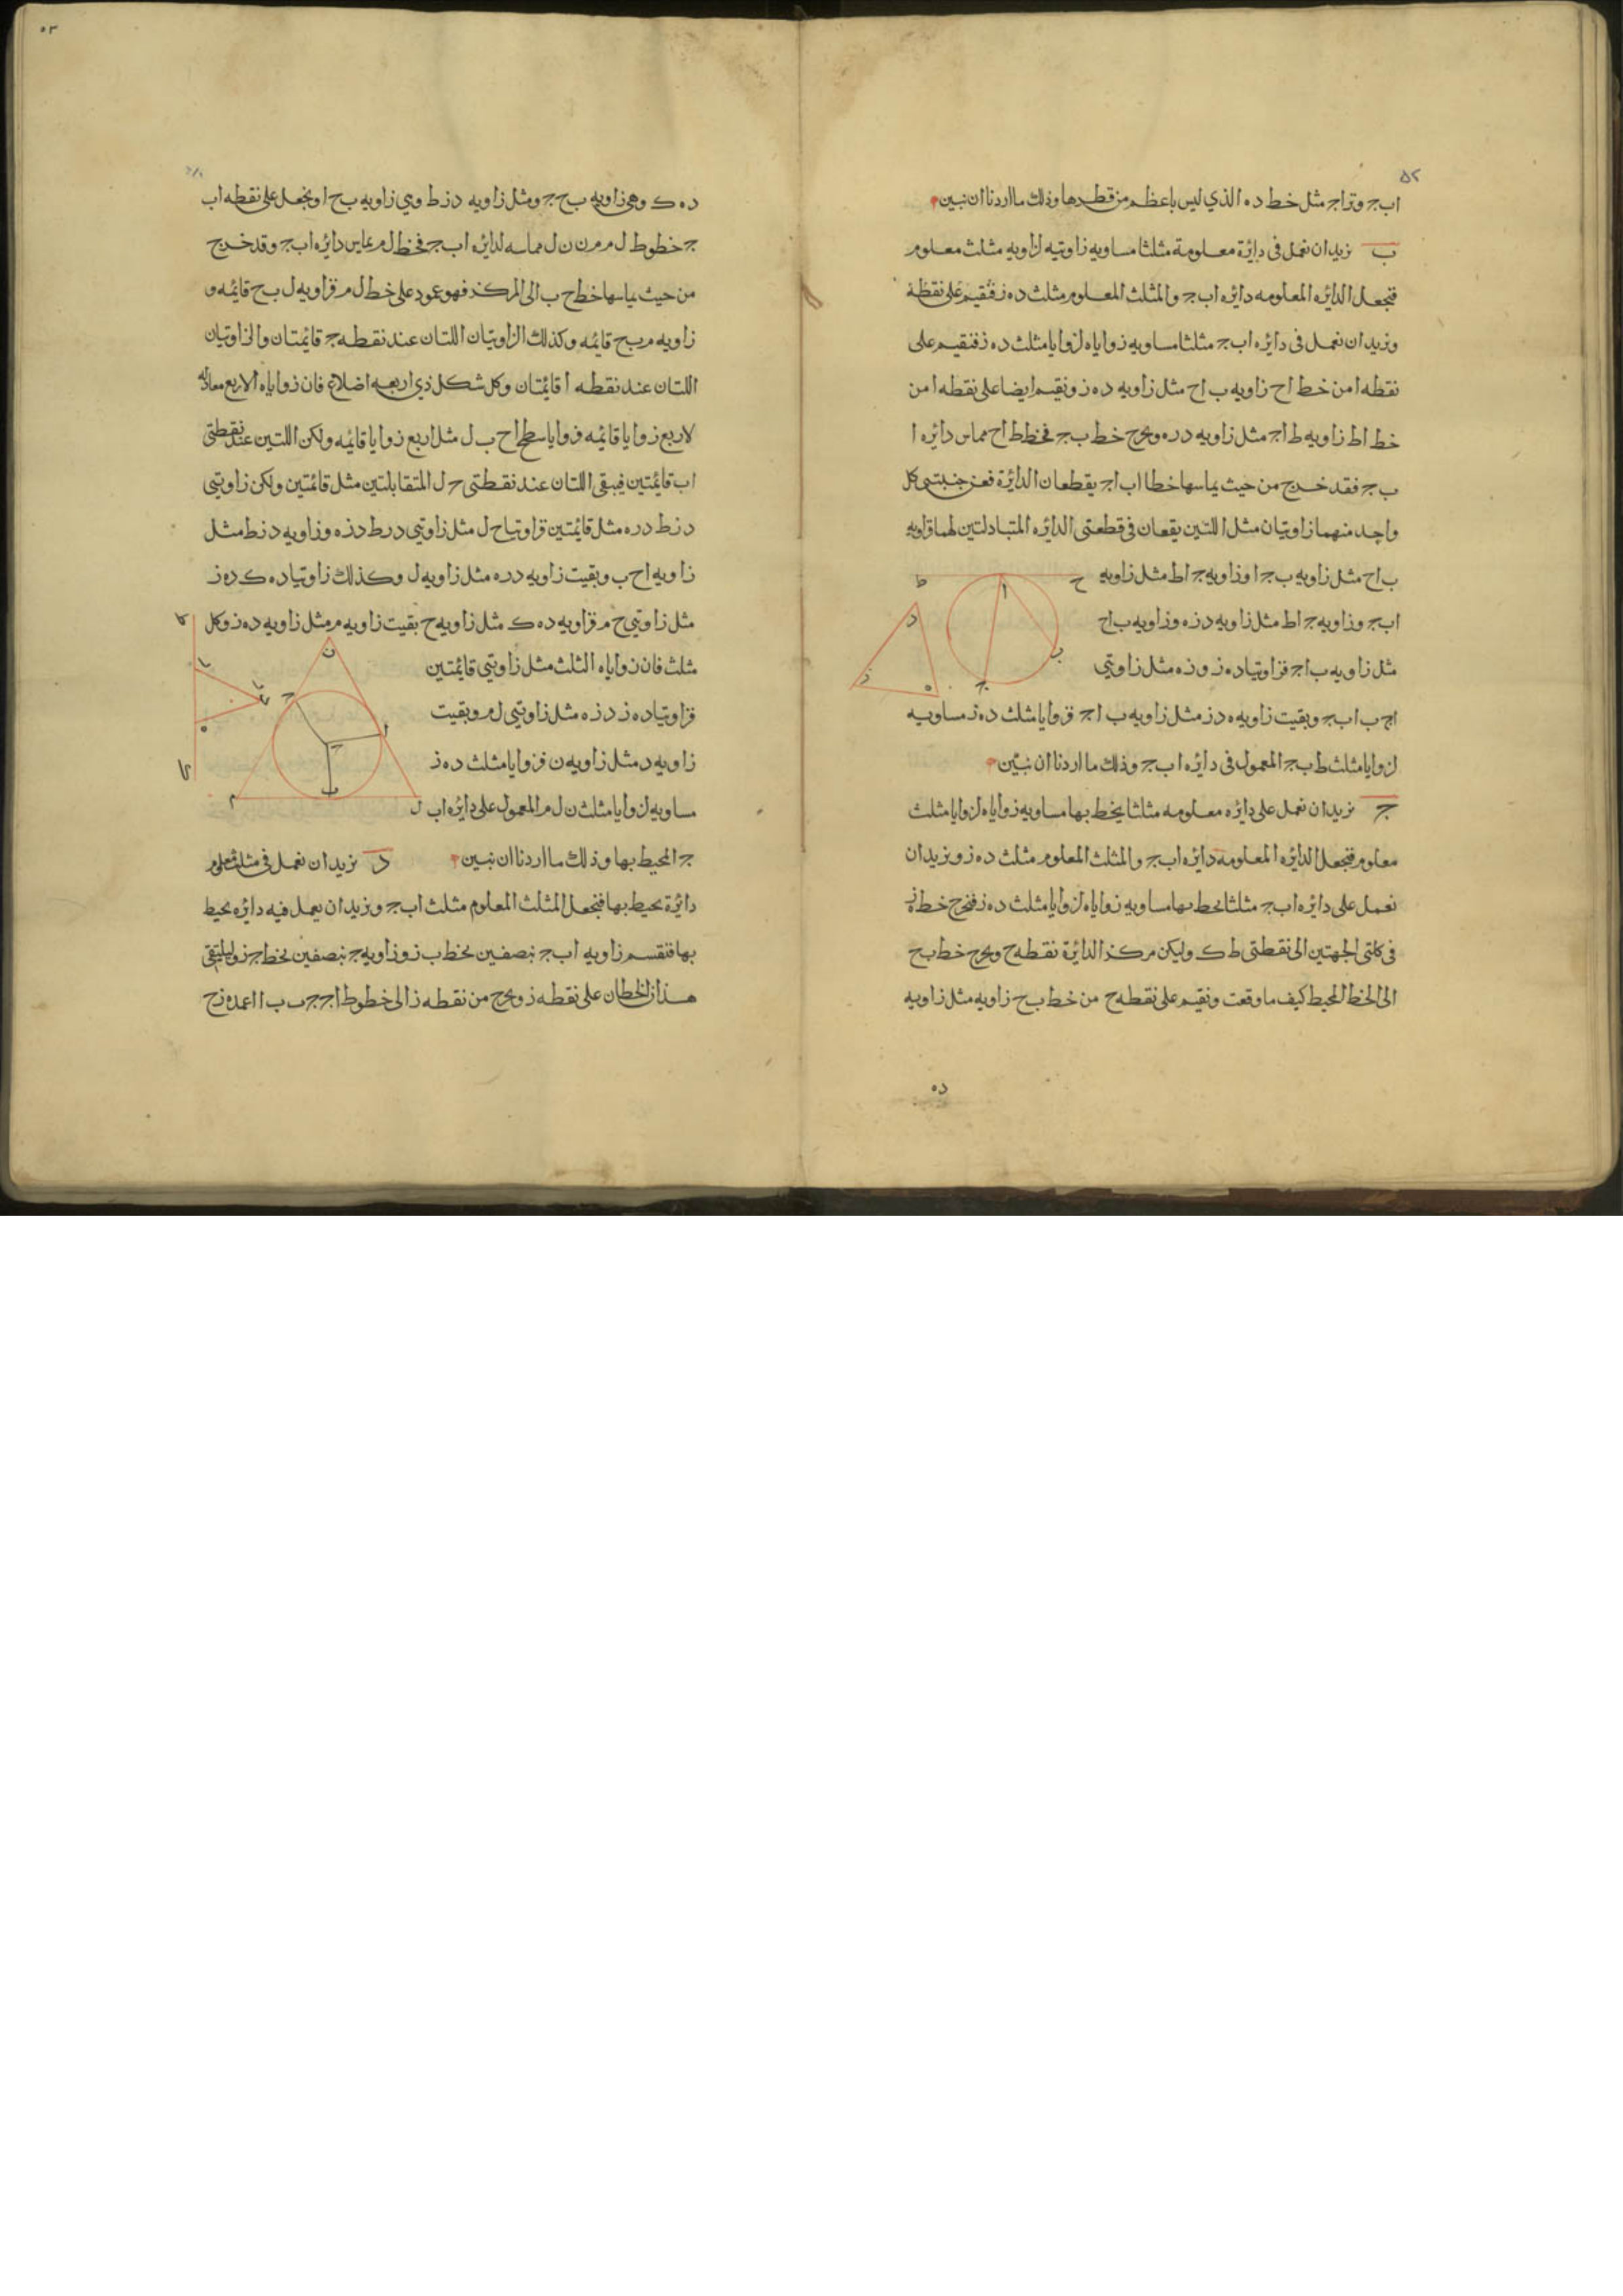 ٥٢
اب ج وتر اج مثل خط ده الذي ليس باعظم من قطرها وذلك ما اردنا ان نبين
ب نريد ان نعمل فى دايرة معلومة مثلثا مساويه زاويته لزاويه مثلث معلوم
فنجعل الدايره المعلومه دايره اب ج والمثلث المعلوم مثلث ده ز فنقيم على نقطة
ونريد ان نعمل فى دايره اب ج مثلثا مساويه زواياه لزوايا مثلث ده ز فنقيم على
نقطه ا من خط اح زاويه ب اح مثل زاويه ده ز ونقيم ايضا على نقطه ا من
خط اط زاويه ط اج مثل زاويه دره ونخرج خط ب ج فخط ط اح مماس دايره ا
ب ج فقد خرج من حيث يماسها خطا اب اج يقطعان الدايرة فعن جنبتى كل
واحد منهما زاويتان مثل اللتين يقعان فى قطعتى الدايره المتبادلتين لهما فزاويه
ب اح مثل زاويه ب ج ا وزاويه ج اط مثل زاويه
اب ج وزاويه ج اط مثل زاويه دزه وزاويه ب اح
مثل زاويه ب اج فزاويتا ده ز وزه مثل زاويتى
اج ب اب ج وبقيت زاويه ه دز مثل زاويه ب اج فزوايا مثلث ده ز مساويه
لزوايا مثلث ط ب ج المعمول فى دايره اب ج وذلك ما اردنا ان نبين
ج نريد ان نعمل على دايره معلومه مثلثا يخط بها مساويه زواياه لزوايا مثلث
معلوم فنجعل الدايره المعلومه دايره اب ج والمثلث المعلوم مثلث ده ز ونريد ان
نعمل على دايره اب ج مثلثا يحط بها مساويه زواياه لزوايا مثلث ده ز فنخرج خط ه ز
فى كلتى الجهتين الى نقطتى ط ك وليكن مركز الدايرة نقطه ح ونخرج خط ب ح
الى الخط المحيط كيف ما وقعت ونقيم على نقطه ح من خط ب ح زاويه مثل زاويه
ده
ط ا ح
د ب
ز ه ج
٥٣
ده ك وهى زاويه ب ح ج ومثل زاويه دزط وهي زاويه ب ح ا ونجعل على نقطه اب
ج خطوط ل م م ن ن ل مماسه لدايره اب ج فخط ل م يماس دايره اب ج وقد خرج
من حيث يماسها خط ح ب الى المركز فهو عمود على خط ل م فزاويه ل ب ح قايمه و
زاويه م ب ح قايمه وكذلك الزاويتان اللتان عند نقطه ج قايمتان والزاويتان
اللتان عند نقطه ا قايمتان وكل شكل ذي اربعه اضلاع فان زواياه الاربع معادله
لاربع زوايا قايمه فزوايا سطح اح ب ل مثل اربع زوايا قايمه ولكن اللتين عند نقطتى
اب قايمتين فيبقى اللتان عند نقطتى ح ل المتقابلتين مثل قائمتين ولكن زاويتى
دزط دره مثل قايمتين فزاويتا ح ل مثل زاويتي درط دزه وزاويه دزط مثل
زاويه اح ب وبقيت زاويه دره مثل زاويه ل وكذلك زاويتا ده ك ده ز
مثل زاويتي ح م فزاويه ده ك مثل زاويه ح بقيت زاويه م مثل زاويه ده ز وكل
مثلث فان زواياه الثلث مثل زاويتي قائمتين
فزاويتا ده ز دزه مثل زاويتي ل م وبقيت
زاويه د مثل زاويه ن فزوايا مثلث ده ز
مساويه لزوايا مثلث ن ل م المعمول على دايره اب
ج المحيط بها وذلك ما اردنا ان نبين د نريد ان نعمل فى مثلث معلوم
دائرة يحيط بها فنجعل المثلث المعلوم مثلث اب ج ونريد ان يعمل فيه دايره يحيط
بها فنقسم زاويه اب ج بنصفين بخط ب ز وزاويه ج بنصفين بخط اج ز وليلتقى
هذان الخطان على نقطه ز ونخرج من نقطه ز الى خطوط اج ج ب ب ا اعمده زح
ن
ج ا ح
م ب ل
ه